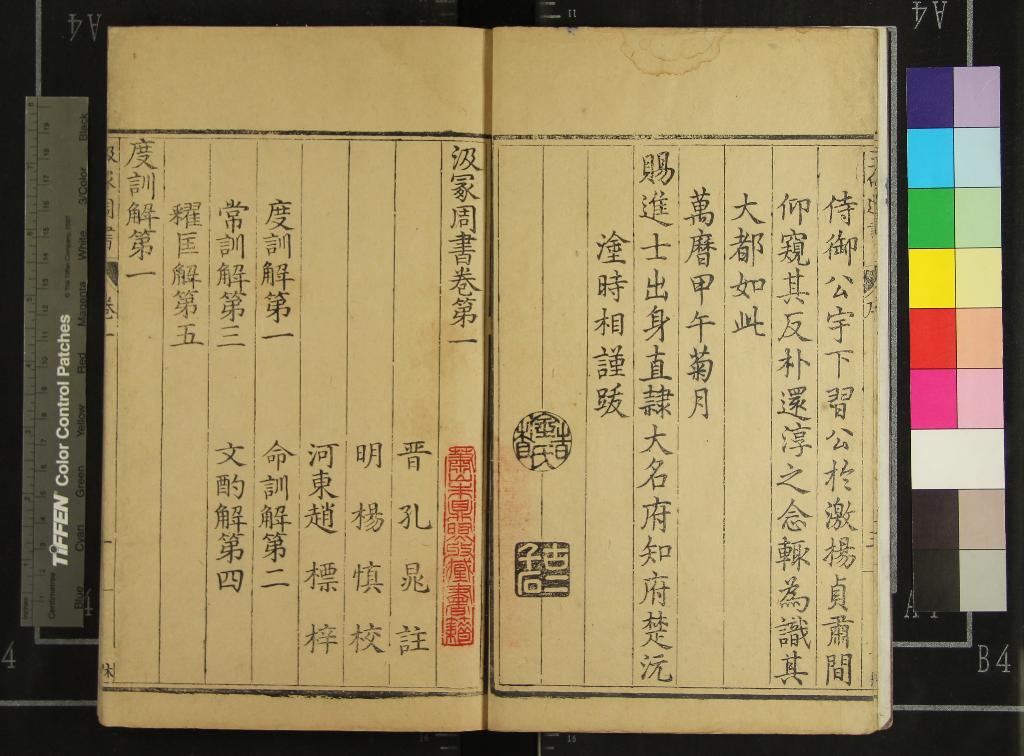 侍御公宇下習公於激揚貞肅間
仰窺其反朴還淳之念輙為識其
大都如此
萬曆甲午菊月
賜進士出身直隷大名府知府楚沅
塗時相謹跋
汲冢周書卷第一
晋孔晁註
明楊慎校
河東趙標梓
度訓解第一
命訓解第二
常訓解第三
文酌解第四
糴匡解第五
度訓解第一
汲冢周書
卷一
TIFFEN Color Control Patches
© The Tiffen Company, 2007
Blue
Cyan
Green
Yellow
Red
Magenta
White
3/Color
Black
Centimetres
A4
A4
B4